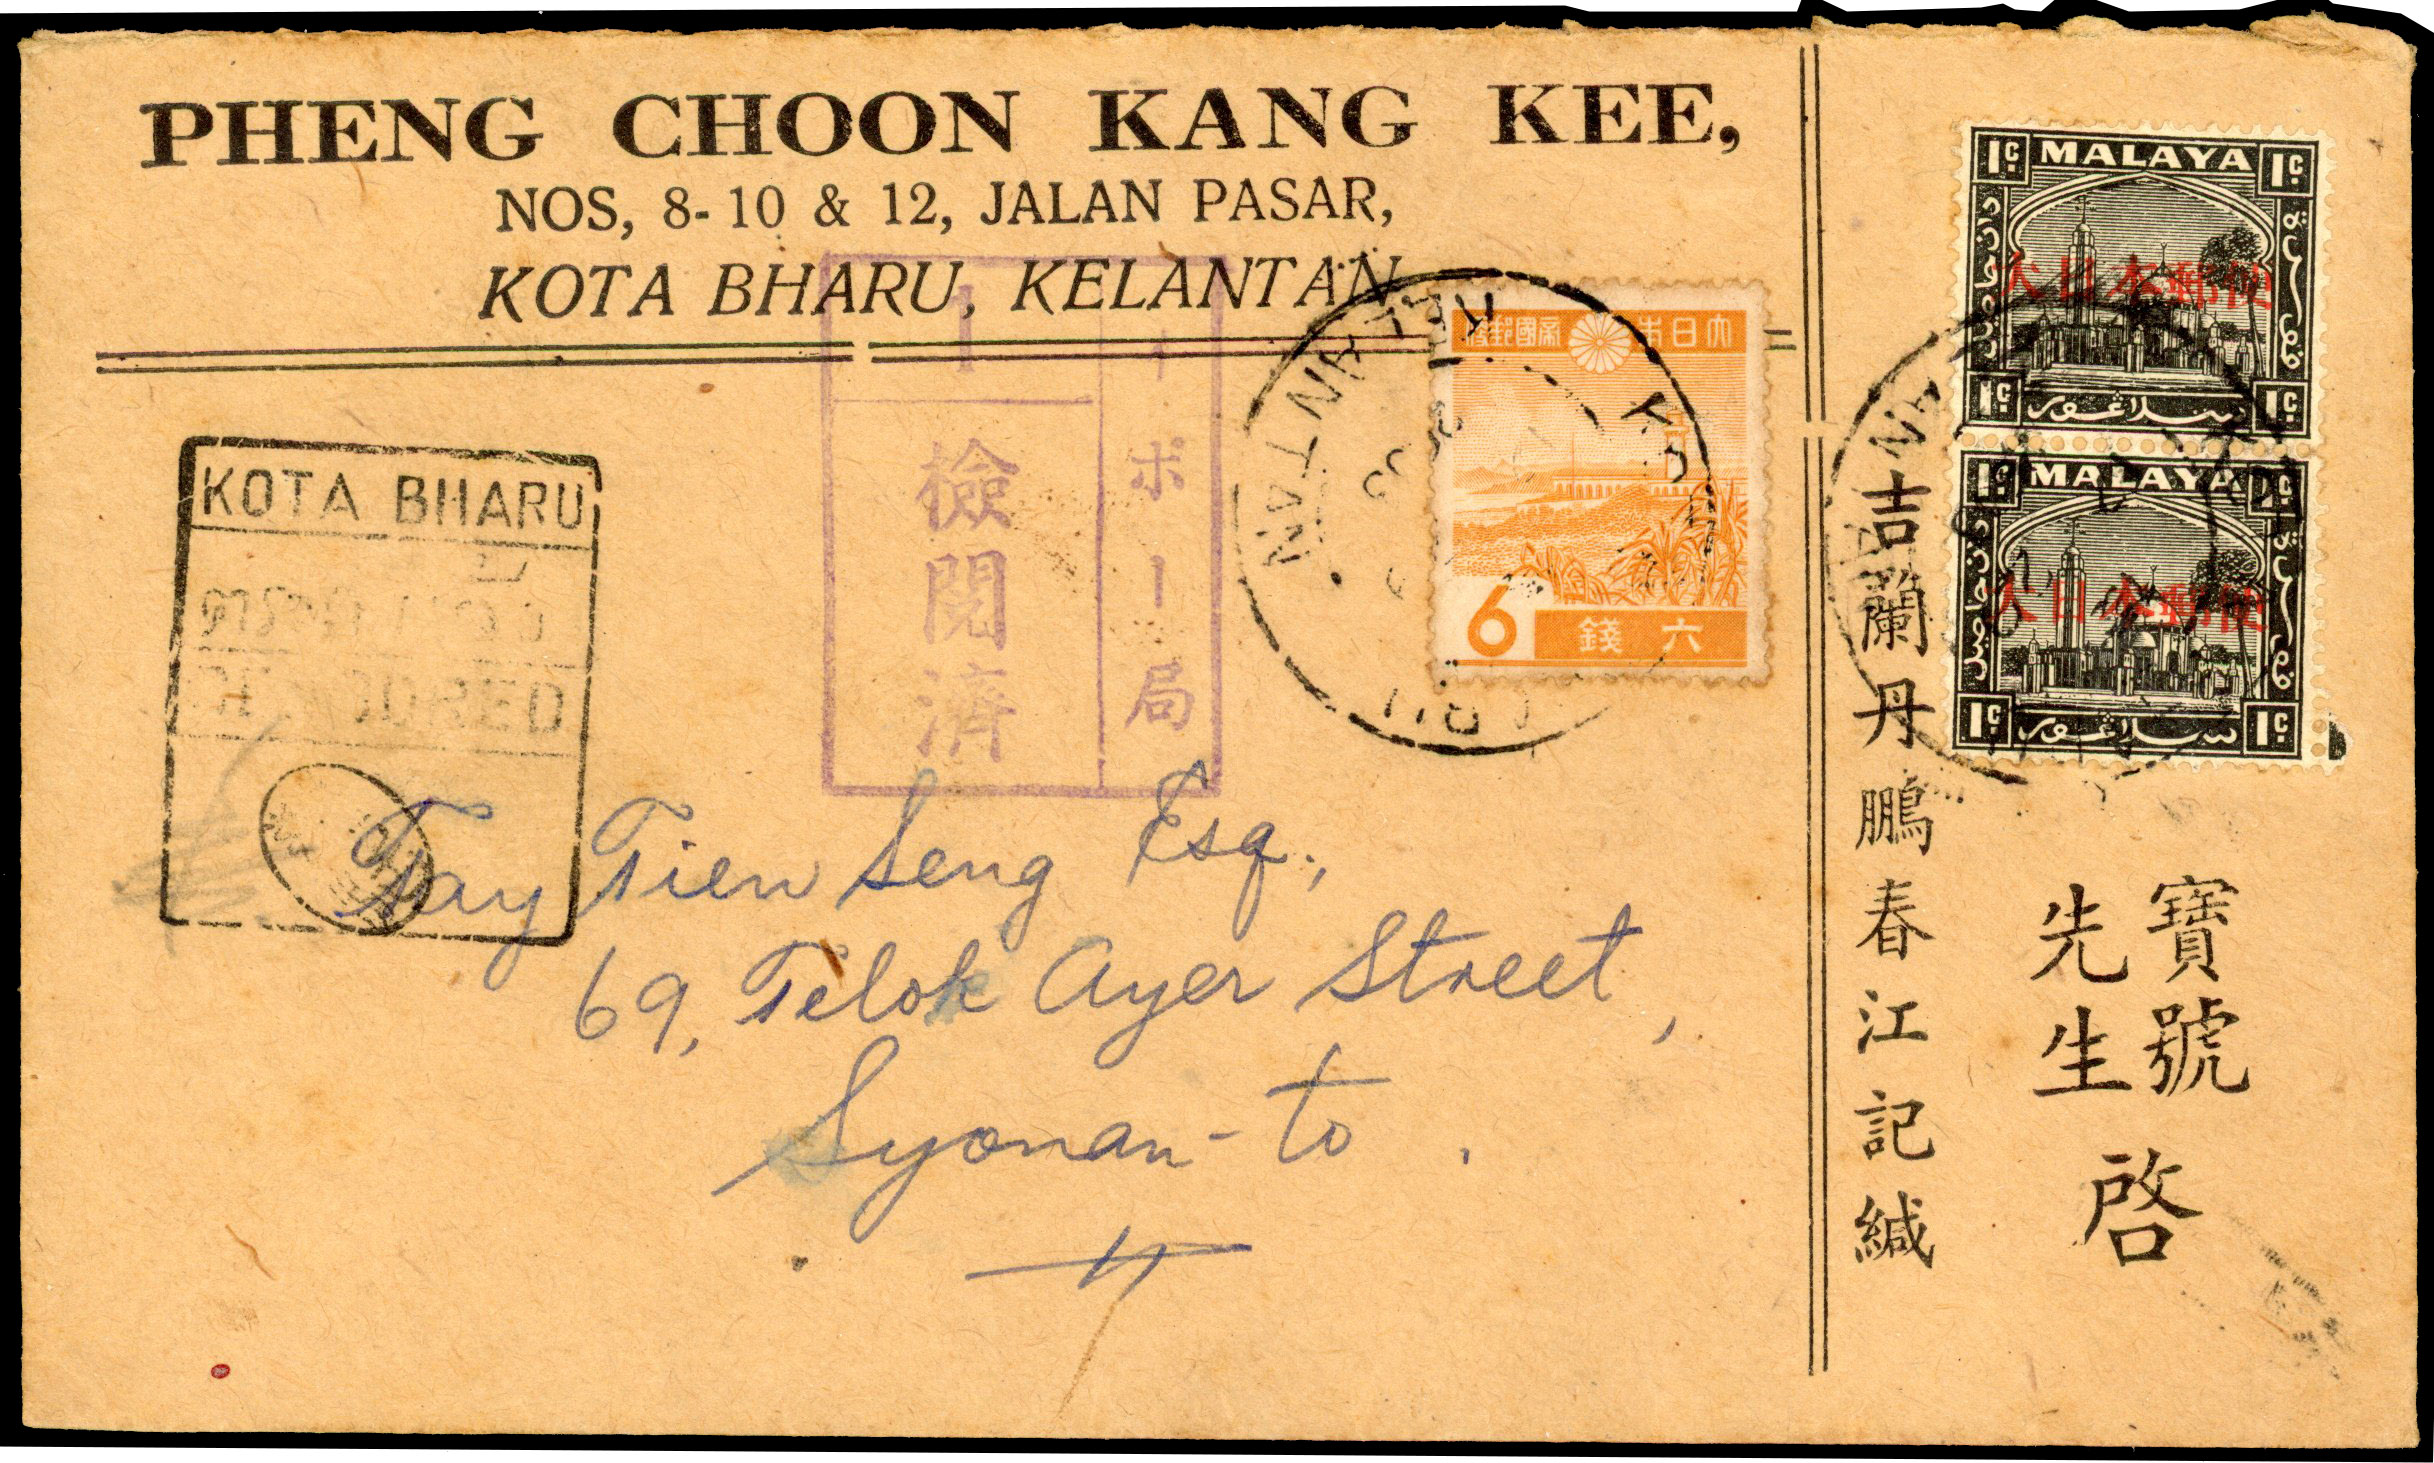 PHENG CHOON KANG KEE,
NOS, 8-10 & 12, JALAN PASAR,
KOTA BHARU, KELANTAN
1c. MALAYA 1c.
大日本郵便
1c. سلاڠور 1c.
1c. MALAYA 1c.
大日本郵便
1c. سلاڠور 1c.
大日本帝國郵便
6 六錢
KELANTAN
KOTA BHARU
CENSORED
1
檢閲済
ポー局
Tay Tien Seng Esq.,
69, Telok Ayer Street,
Syonan-to.
寶號
先生
啓
吉蘭丹鵬春江記緘